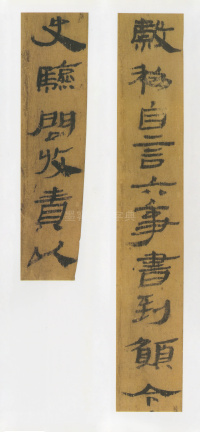 移自言六事書到願令
史驗問收責以